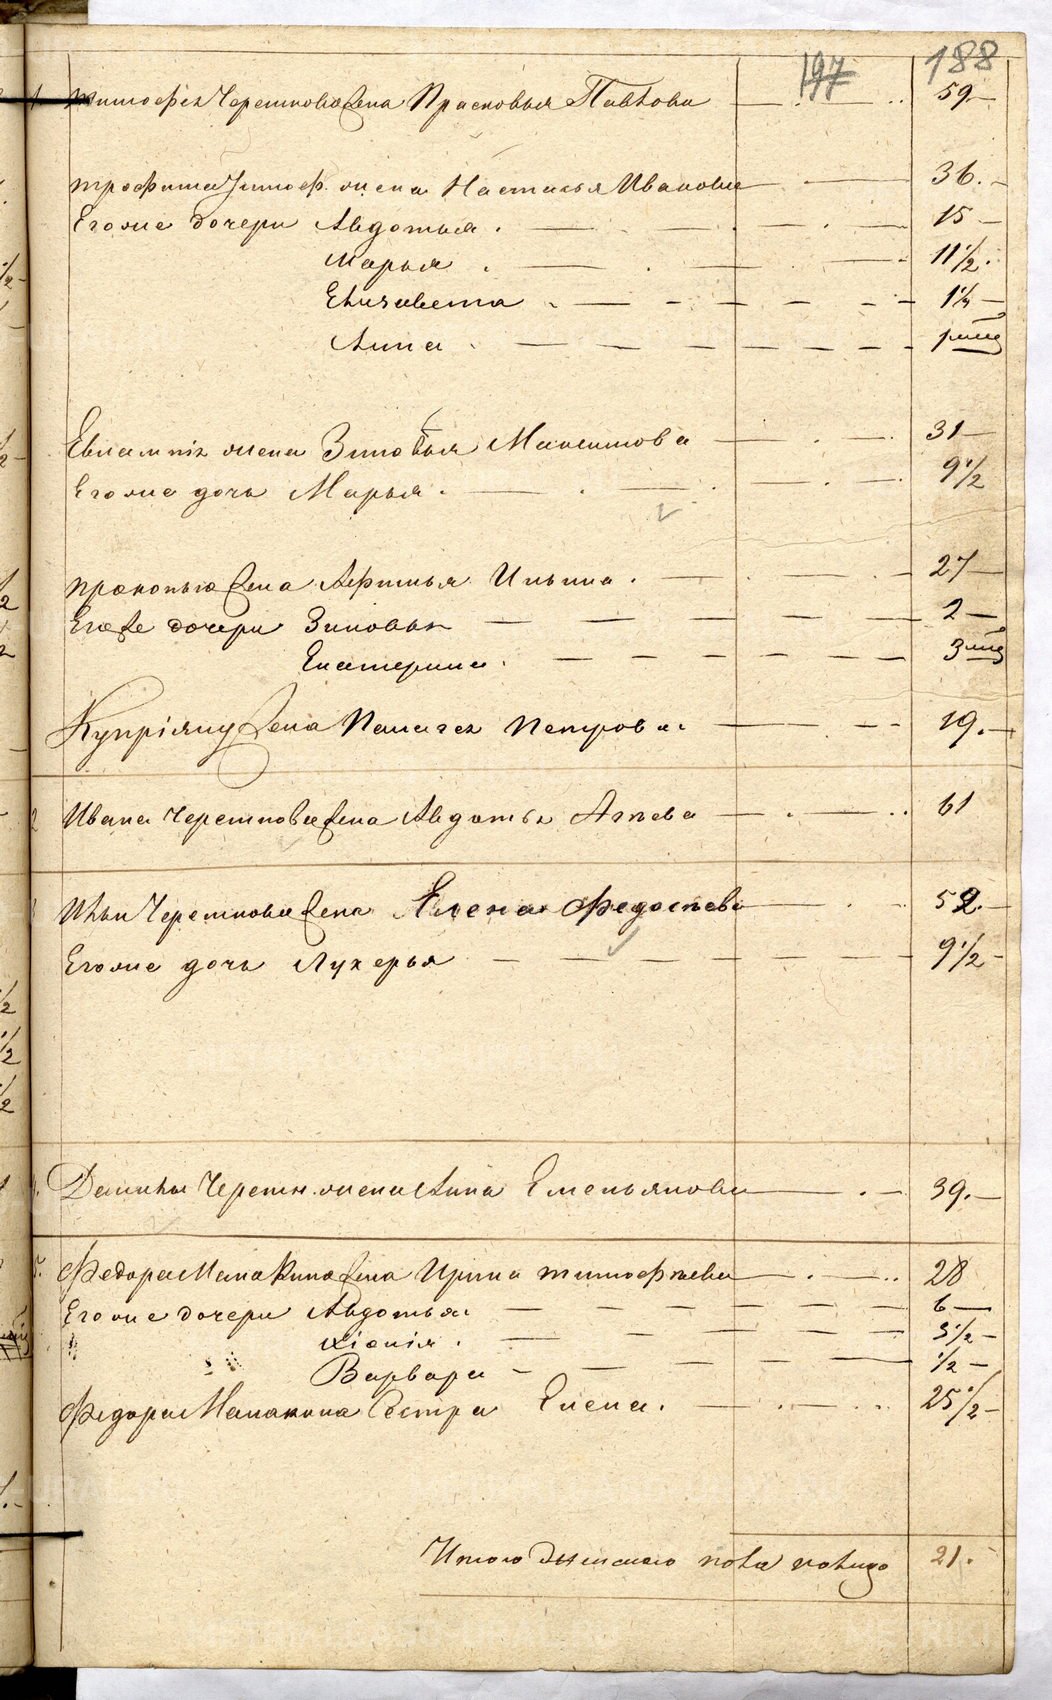 197 188
Тимофея Черемнова жена Прасковья Павлова 59
Трофима Тимоф. жена Настасья Иванова 36.
Егоже дочери Авдотья 15
Марья 11 1/2
Елизавета 1 1/2
Анна
Евлампия жена Зиновья Максимова 31
Егоже дочь Марья 9 1/2
Прокопья жена Афимья Ильина 27
Егоже дочери Зиновья 2
Екатерина 3
Купріяну жена Палагея Петрова 19.
Ивана Черемнова жена Авдотья 61
Ильи Черемнова жена Елена Федосеева 52.
Егоже дочь Лукерья 9 1/2
Данилы Черемн. жена Анна Емельянова 39.
Федора Манакина жена Ирина Тимофеева 28
Егоже дочери Авдотья 6
Хіонія 3 1/2
Варвара 1/2
Федора Манакина сестра Елена. 25 1/2
Итого женскаго пола налицо 21.